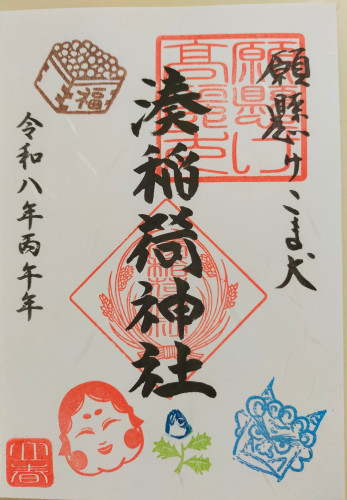 願懸け
高麗犬
願懸けこま犬
湊稲荷神社
福
令和八年丙午年
立春